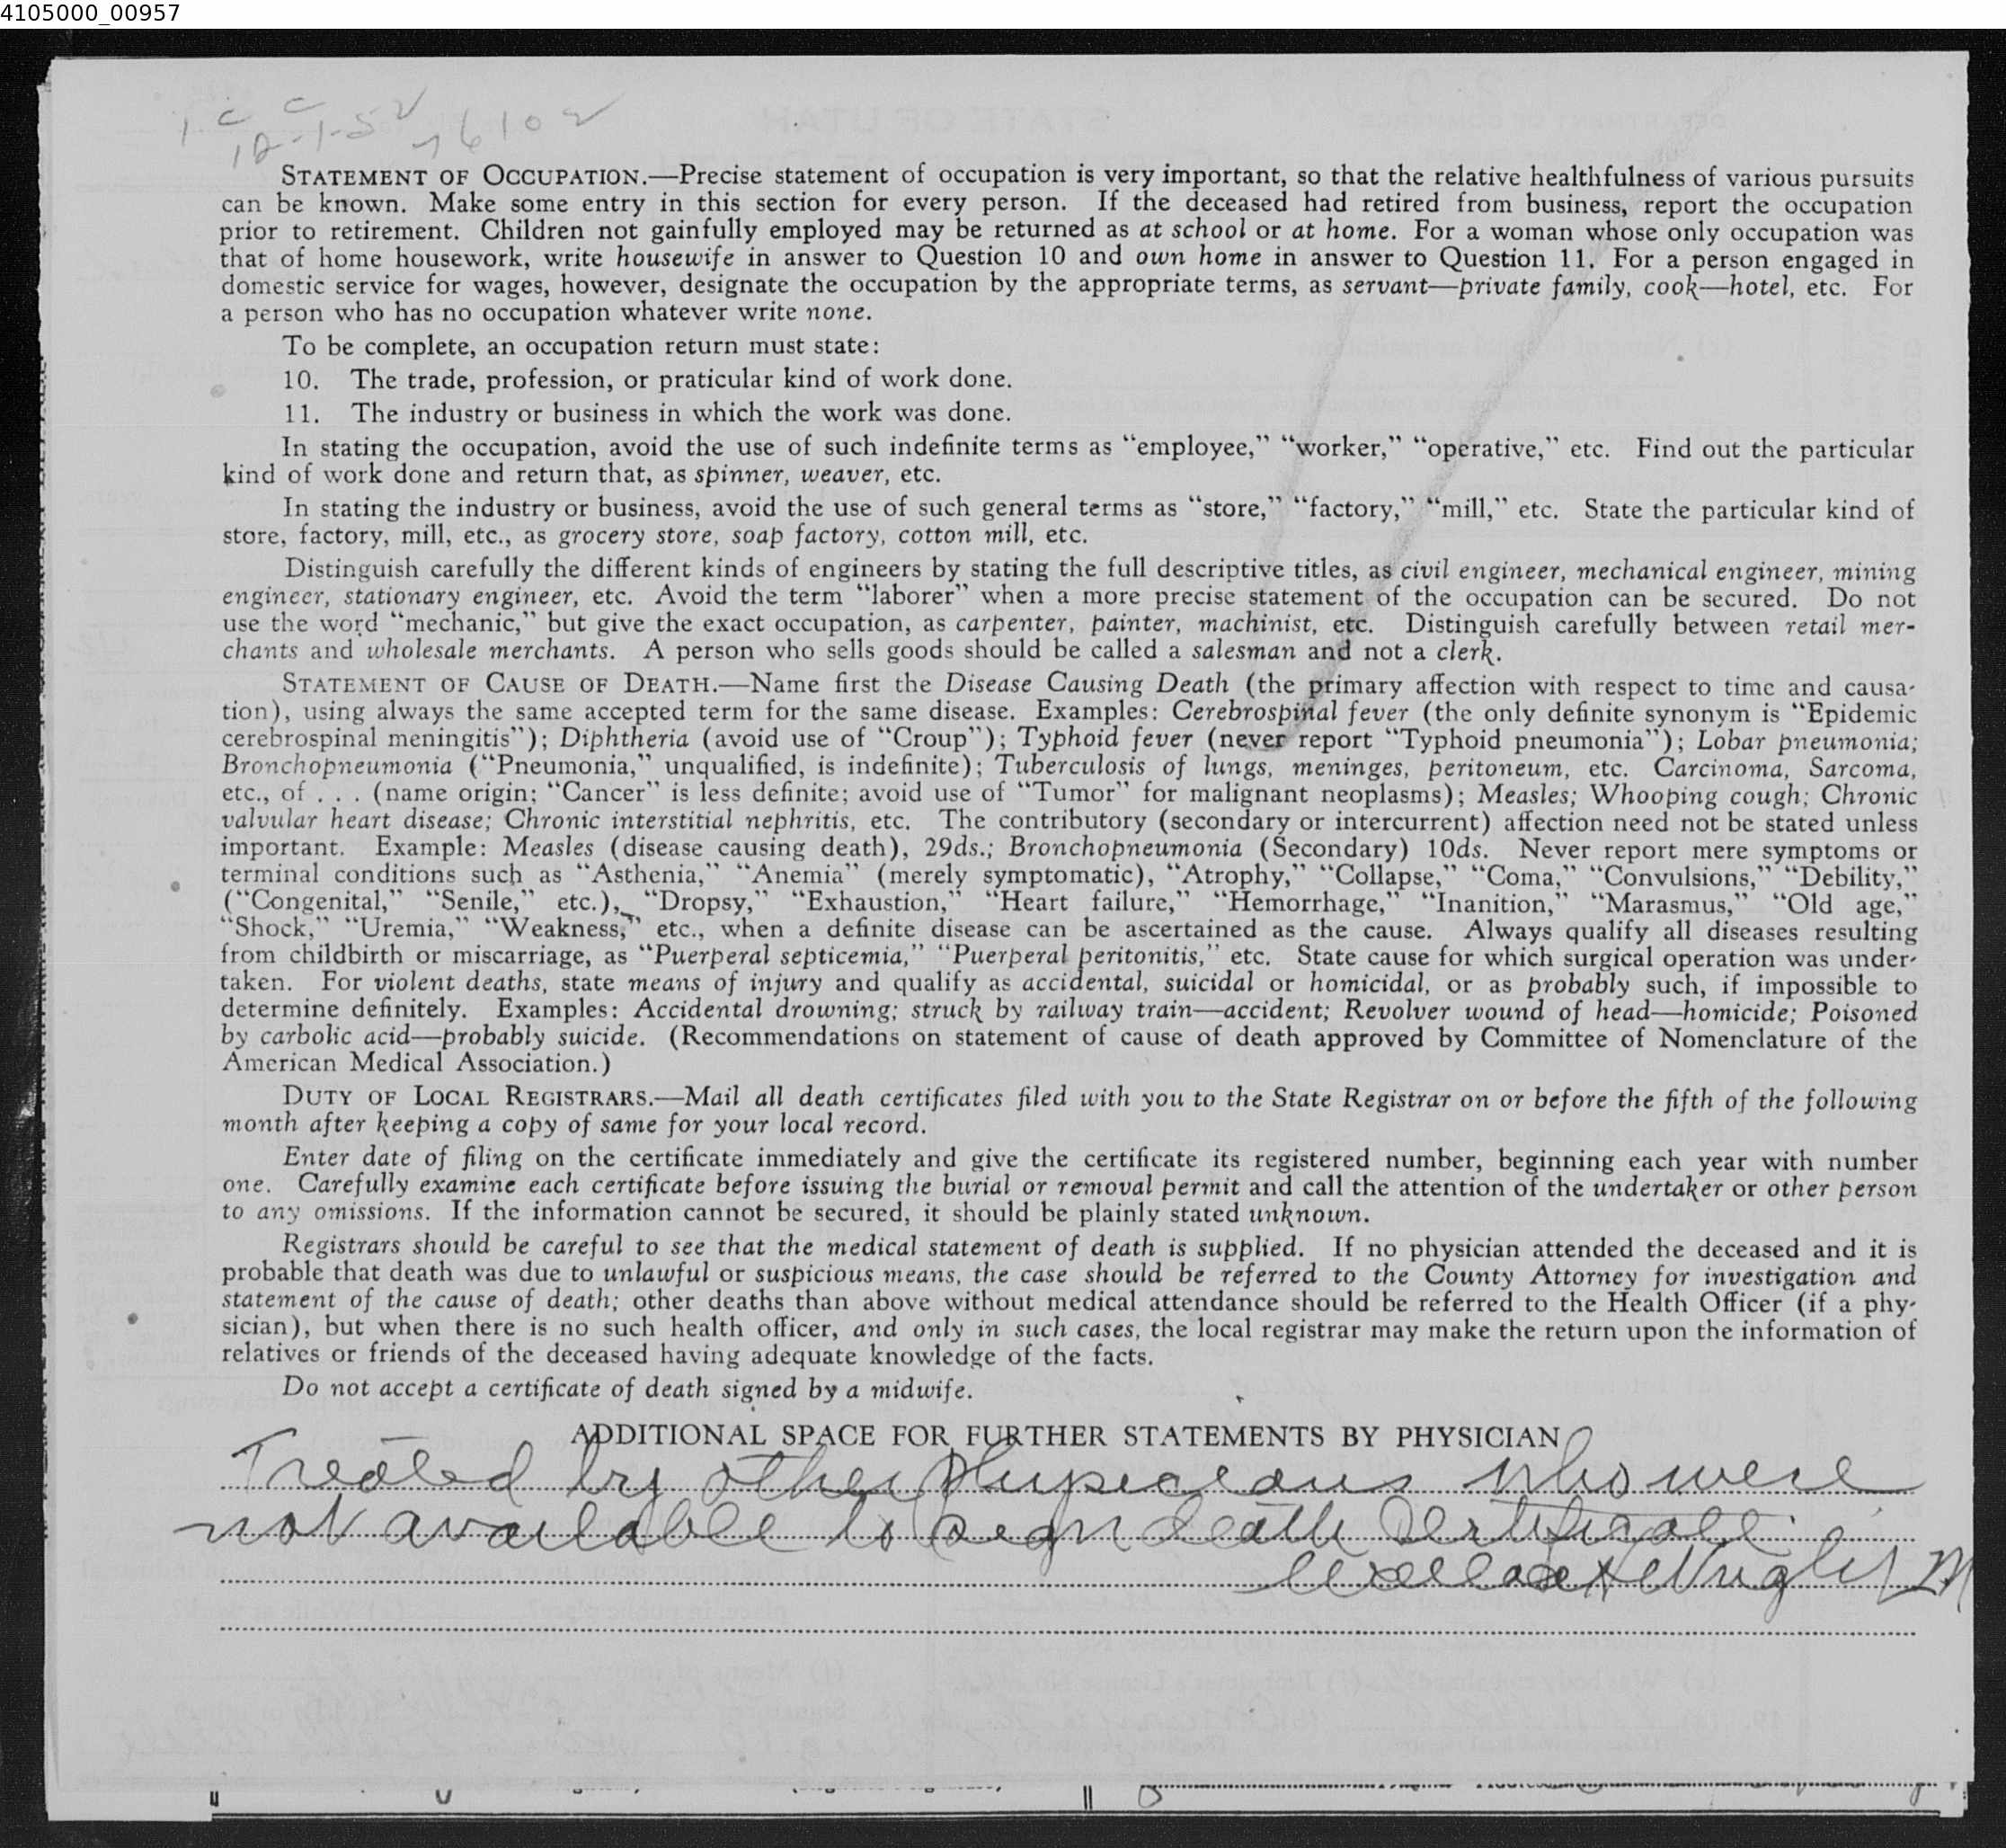 4105000_00957
1 c c
12-1-52 76102
STATEMENT OF OCCUPATION.—Precise statement of occupation is very important, so that the relative healthfulness of various pursuits
can be known. Make some entry in this section for every person. If the deceased had retired from business, report the occupation
prior to retirement. Children not gainfully employed may be returned as at school or at home. For a woman whose only occupation was
that of home housework, write housewife in answer to Question 10 and own home in answer to Question 11. For a person engaged in
domestic service for wages, however, designate the occupation by the appropriate terms, as servant—private family, cook—hotel, etc. For
a person who has no occupation whatever write none.
To be complete, an occupation return must state:
10. The trade, profession, or praticular kind of work done.
11. The industry or business in which the work was done.
In stating the occupation, avoid the use of such indefinite terms as “employee,” “worker,” “operative,” etc. Find out the particular
kind of work done and return that, as spinner, weaver, etc.
In stating the industry or business, avoid the use of such general terms as “store,” “factory,” “mill,” etc. State the particular kind of
store, factory, mill, etc., as grocery store, soap factory, cotton mill, etc.
Distinguish carefully the different kinds of engineers by stating the full descriptive titles, as civil engineer, mechanical engineer, mining
engineer, stationary engineer, etc. Avoid the term “laborer” when a more precise statement of the occupation can be secured. Do not
use the word “mechanic,” but give the exact occupation, as carpenter, painter, machinist, etc. Distinguish carefully between retail mer-
chants and wholesale merchants. A person who sells goods should be called a salesman and not a clerk.
STATEMENT OF CAUSE OF DEATH.—Name first the Disease Causing Death (the primary affection with respect to time and causa-
tion), using always the same accepted term for the same disease. Examples: Cerebrospinal fever (the only definite synonym is “Epidemic
cerebrospinal meningitis”); Diphtheria (avoid use of “Croup”); Typhoid fever (never report “Typhoid pneumonia”); Lobar pneumonia;
Bronchopneumonia (“Pneumonia,” unqualified, is indefinite); Tuberculosis of lungs, meninges, peritoneum, etc. Carcinoma, Sarcoma,
etc., of . . . (name origin; “Cancer” is less definite; avoid use of “Tumor” for malignant neoplasms); Measles; Whooping cough; Chronic
valvular heart disease; Chronic interstitial nephritis, etc. The contributory (secondary or intercurrent) affection need not be stated unless
important. Example: Measles (disease causing death), 29ds.; Bronchopneumonia (Secondary) 10ds. Never report mere symptoms or
terminal conditions such as “Asthenia,” “Anemia” (merely symptomatic), “Atrophy,” “Collapse,” “Coma,” “Convulsions,” “Debility,”
(“Congenital,” “Senile,” etc.), “Dropsy,” “Exhaustion,” “Heart failure,” “Hemorrhage,” “Inanition,” “Marasmus,” “Old age,”
“Shock,” “Uremia,” “Weakness,” etc., when a definite disease can be ascertained as the cause. Always qualify all diseases resulting
from childbirth or miscarriage, as “Puerperal septicemia,” “Puerperal peritonitis,” etc. State cause for which surgical operation was under-
taken. For violent deaths, state means of injury and qualify as accidental, suicidal or homicidal, or as probably such, if impossible to
determine definitely. Examples: Accidental drowning; struck by railway train—accident; Revolver wound of head—homicide; Poisoned
by carbolic acid—probably suicide. (Recommendations on statement of cause of death approved by Committee of Nomenclature of the
American Medical Association.)
DUTY OF LOCAL REGISTRARS.—Mail all death certificates filed with you to the State Registrar on or before the fifth of the following
month after keeping a copy of same for your local record.
Enter date of filing on the certificate immediately and give the certificate its registered number, beginning each year with number
one. Carefully examine each certificate before issuing the burial or removal permit and call the attention of the undertaker or other person
to any omissions. If the information cannot be secured, it should be plainly stated unknown.
Registrars should be careful to see that the medical statement of death is supplied. If no physician attended the deceased and it is
probable that death was due to unlawful or suspicious means, the case should be referred to the County Attorney for investigation and
statement of the cause of death; other deaths than above without medical attendance should be referred to the Health Officer (if a phy-
sician), but when there is no such health officer, and only in such cases, the local registrar may make the return upon the information of
relatives or friends of the deceased having adequate knowledge of the facts.
Do not accept a certificate of death signed by a midwife.
ADDITIONAL SPACE FOR FURTHER STATEMENTS BY PHYSICIAN
Treated by other Physicians who were
not available to sign death Certificate.